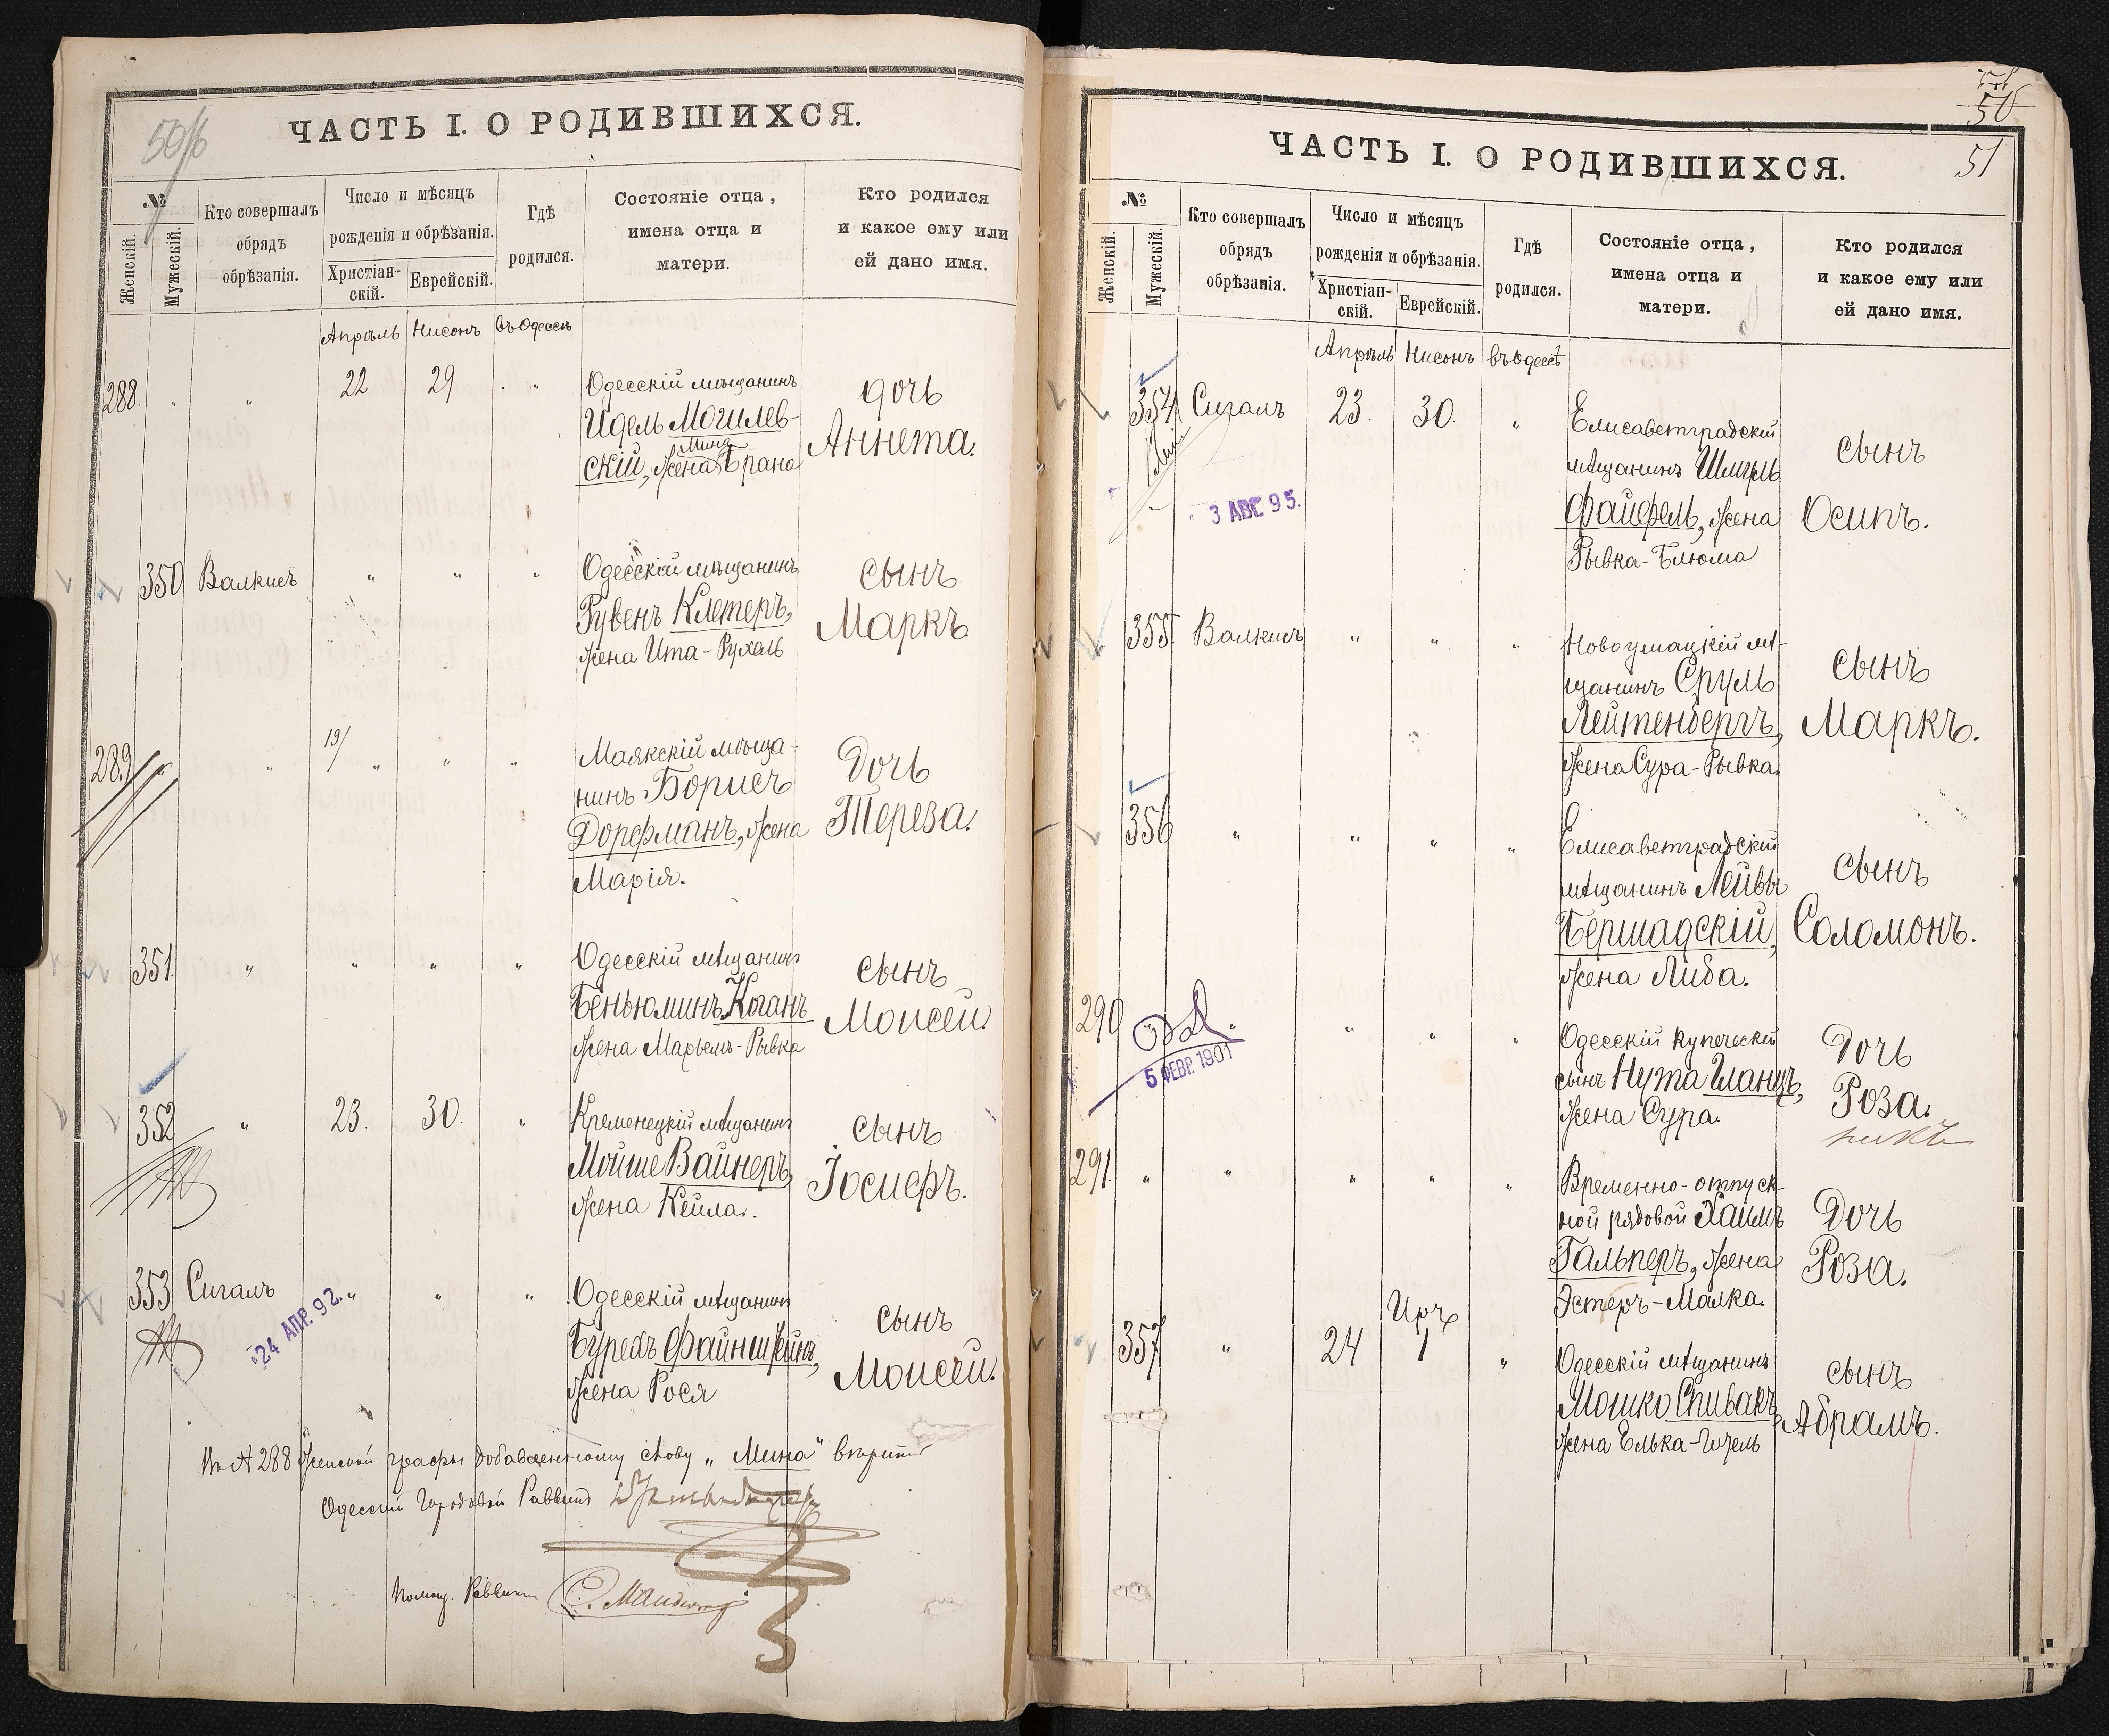 50/б
ЧАСТЬ I. О РОДИВШИХСЯ.
№
Женскій.
Мужескій.
Кто совершалъ
обрядъ
обрѣзанія.
Число и мѣсяцъ
рожденія и обрѣзанія.
Христіан-
скій.
Еврейскій.
Гдѣ
родился.
Состояніе отца,
имена отца и
матери.
Кто родился
и какое ему или
ей дано имя.
Апрѣль Нисонъ въ Одессѣ
288. " " 22 29 " Одесскій мѣщанинъ
Идель Могилев-
Мина
скій, жена Брана
дочь
Аннета.
350 Валкисъ " " " Одесскій мѣщанинъ
Рувенъ Клетеръ,
жена Ита-Рухаль
сынъ
Маркъ
289 " " 19/ " " " Маякскій мѣща-
нинъ Борисъ
Дорфманъ, жена
Марія.
Дочь
Тереза.
351. " " " " Одесскій мѣщанинъ
Беньюминъ Коганъ
жена Марьемъ-Рывка
сынъ
Моисей.
352 " 23. 30. " Кременецкій мѣщанинъ
Мойше Вайнеръ,
жена Кейла.
сынъ
Іосифъ.
353 Сигалъ " " " Одесскій мѣщанинъ
24 АПР. 92.
Бурехъ Файнштейнъ,
жена Рося
сынъ
Моисей.
№ 288 женской графы добавленному слову „Мина" вѣрить
Одесскій Городовой Раввинъ
Помощ. Раввина
50
51
ЧАСТЬ I. О РОДИВШИХСЯ.
№
Женскій.
Мужескій.
Кто совершалъ
обрядъ
обрѣзанія.
Число и мѣсяцъ
рожденія и обрѣзанія.
Христіан-
скій.
Еврейскій.
Гдѣ
родился.
Состояніе отца,
имена отца и
матери.
Кто родился
и какое ему или
ей дано имя.
Апрѣль Нисонъ въ Одессѣ
354 Сигалъ 23. 30. " Елисаветградскій
мѣщанинъ Шмуль
Файфель, жена
Рывка-Блюма
сынъ
Осипъ.
3 АВГ. 95.
355. Валкисъ " " " Новоумацкій мѣ-
щанинъ Сруль
Лейтенбергъ,
жена Сура-Рывка.
сынъ
Маркъ.
356 " " " " Елисаветградскій
мѣщанинъ Лейвы
Бершадскій,
жена Либа.
сынъ
Соломонъ.
290 " " " " " Одесскій купеческій
5 ФЕВР. 1901
сынъ Нута Гланцъ,
жена Сура.
Дочь
Роза.
291. " " " " " Временно-отпуск-
ной рядовой Хаимъ
Гальперъ, жена
Эстеръ-Малка.
Дочь
Роза.
Иръ
357 " 24 1 " Одесскій мѣщанинъ
Мошко Спивакъ,
жена Елька-Гизель
сынъ
Абрамъ.